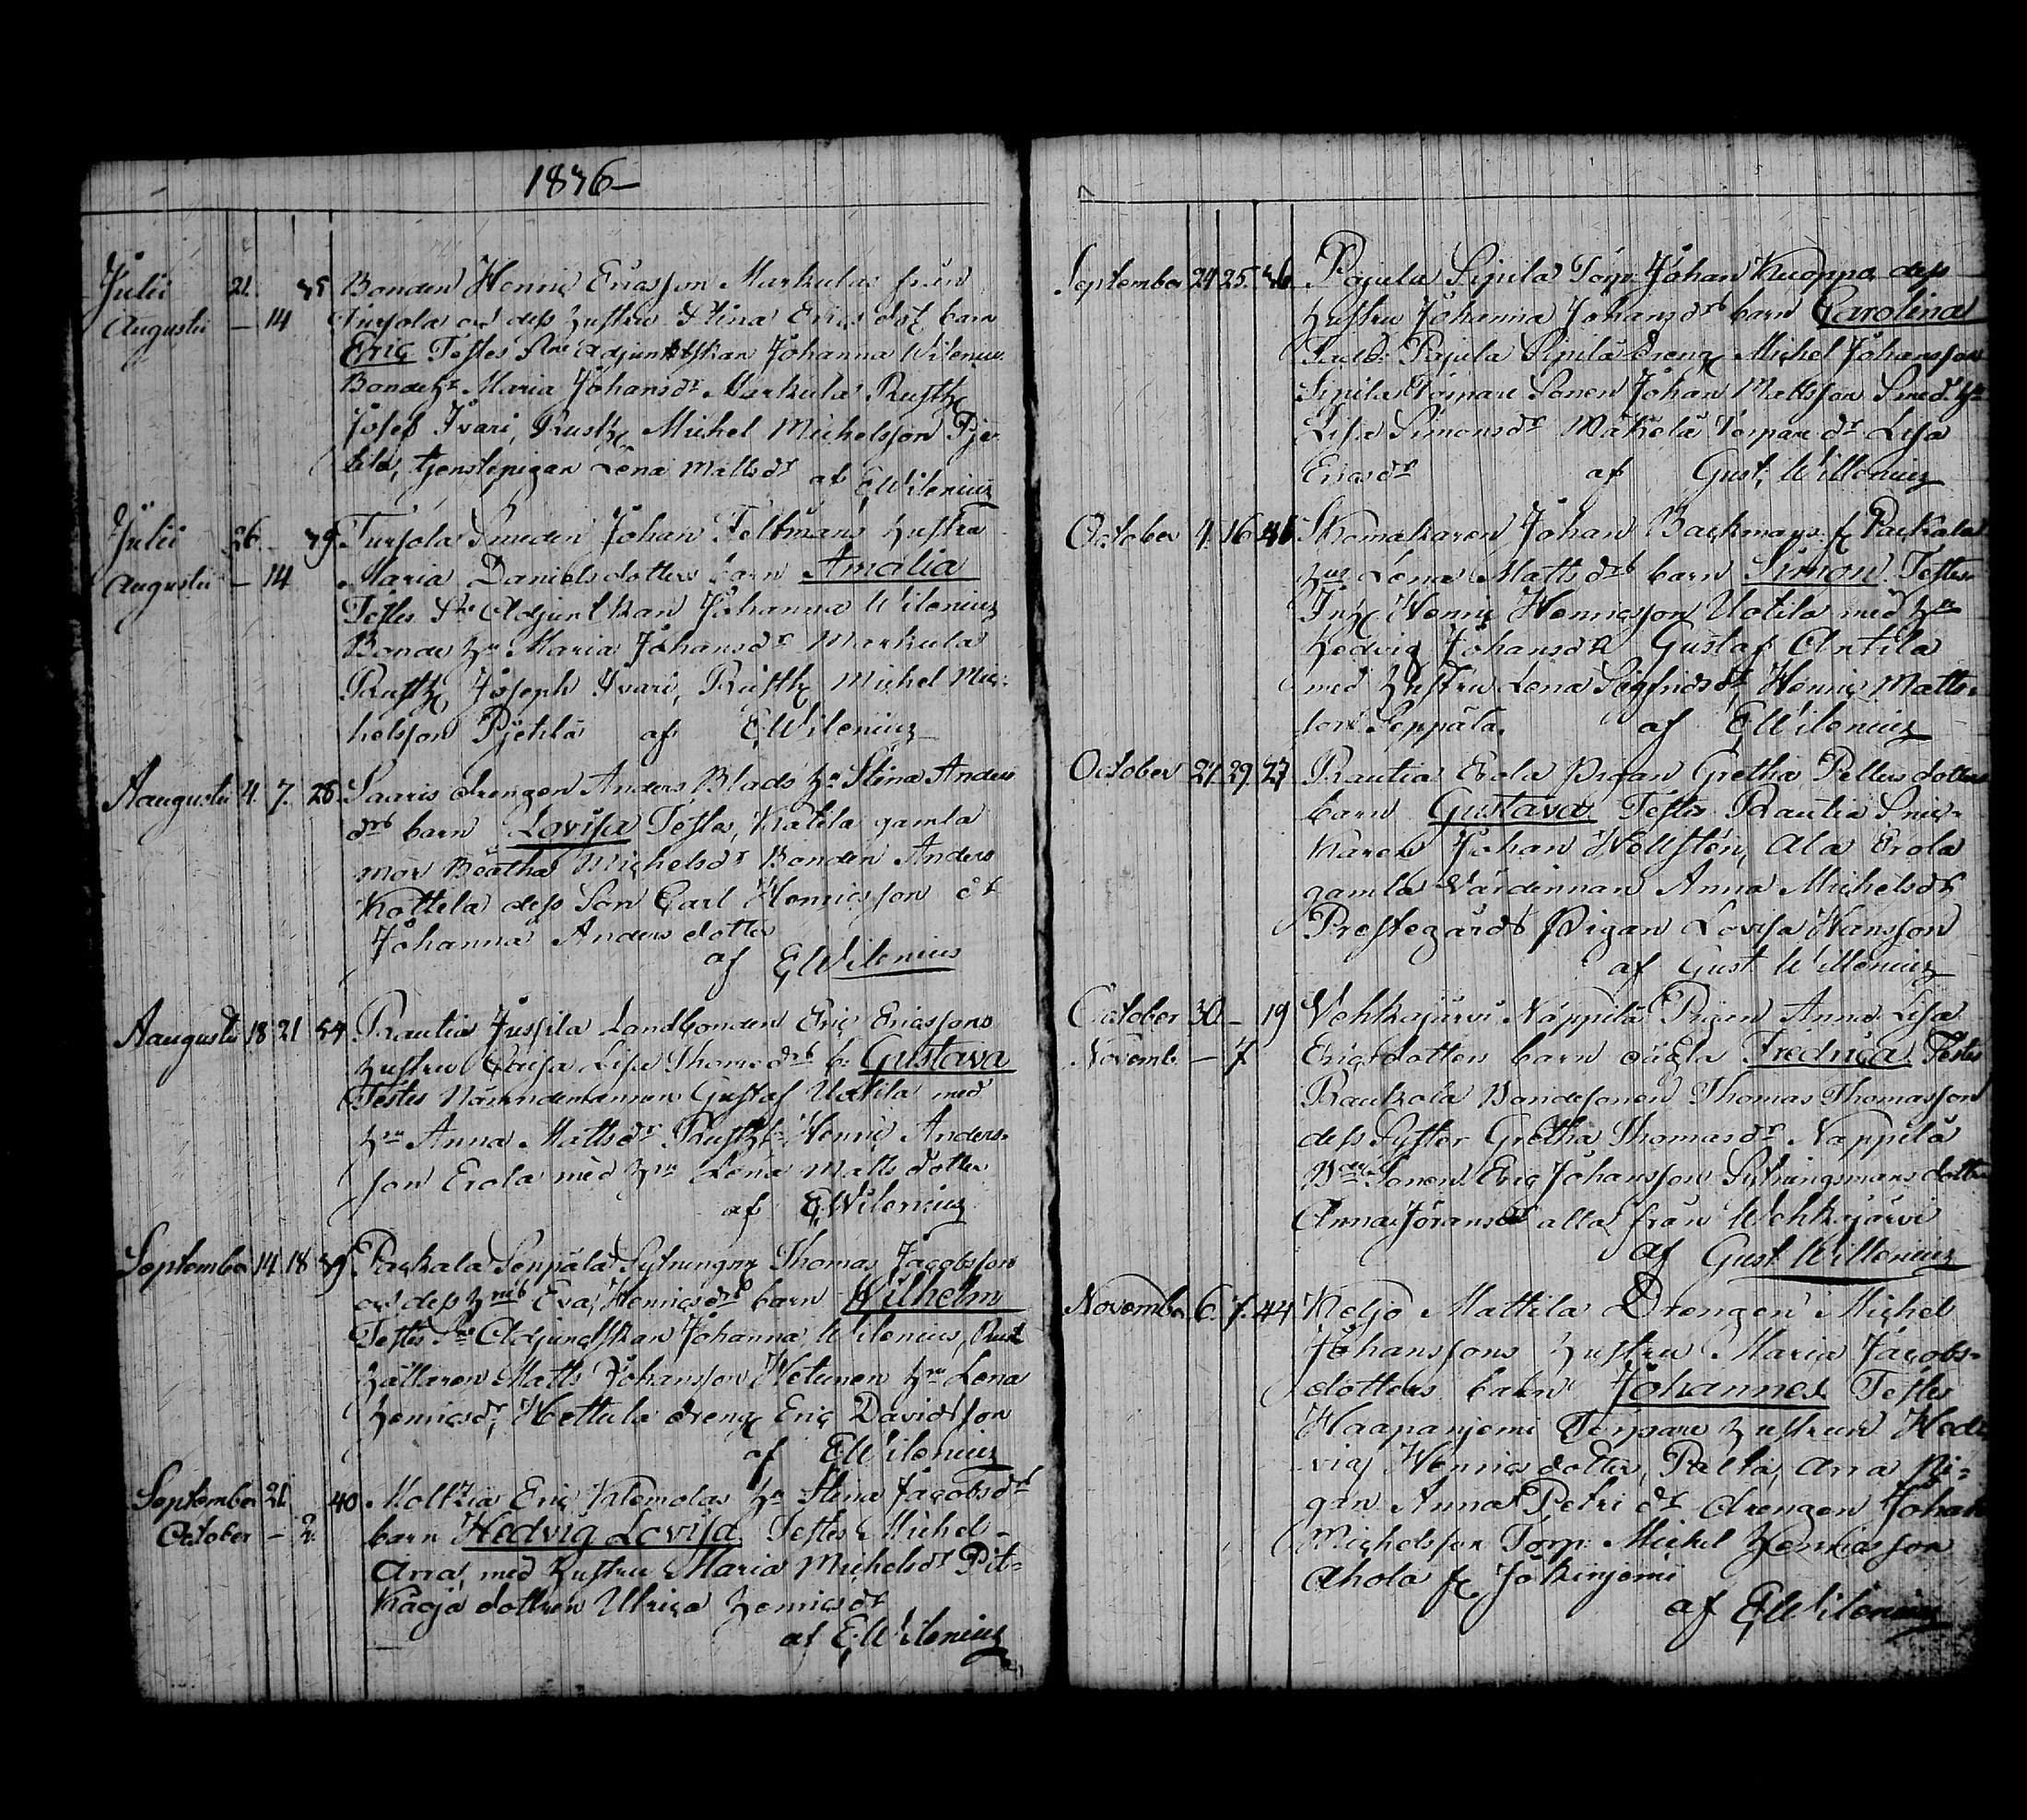 1836—
Julii 21. 35 Bonden Henric Ericsson Markulas från
Augusti — 14 Turjola och dess hustru Stina Erics dotr barn
Eric Testes Fru Adjunktskan Johanna Wilenius
Bondehu Maria Johansdr Markula Rusth
Josef Ivari, Rusth Michel Michelsson Pje
tilä, tjenstepigan Lena Mattsdr af E Wilenius
Julii 26. — 39. Turjola Smeden Johan Feltmans hustru
Augusti — 14 Maria Danielsdotters barn Amalia
Testes Fru Adjunktskan Johanna Wilenius
Bonde hu Maria Johansdr Markula
Rusth Joseph Ivari, Rusth Michel Mic-
helsson Pjetilä af E Wilenius
Augusti 4. 7. 28. Saaris drengen Anders Blads hu Stina Anders
drs barn Lovisa Testes, Katila gamla
mor Beatha Michelsdr Bonden Anders
Kottela dess Son Carl Henricsson
Johanna Anders dotter
af E Wilenius
Augusti 18 21 34 Rautia Jussila Landbonden Eric Ericssons
hustru Caisa Lisa Thomedrs b: Gustava
Testes Nämndemannen Gustaf Uotila med
hu Anna Mattsdr Rusth Henric Anders-
son Erola med hu Lena Matts dotter
af E Wilenius
September 14. 18 39. Packala Seppälä Sytningsm Thomas Jacobsson
och dess hus Eva Henricsdrs barn Wilhelm
Testes Fru Adjunktskan Johanna Wilenius, Rust
hållaren Matts Johansson Wetunen hu Lena
Henricsdr, Wettula dreng Eric Davidsson
af E Wilenius
September 21. 40 Moltzia Eric Klemolas hu Stina Jacobsdrs
October — 2. barn Hedvig Lovisa Testes Michel
Arra med hustru Maria Michelsdr Pit-
käojo dottren Ulrica Henricsdr
af E Wilenius
September 24 25. 36. Pajula Sipilä Torp. Johan Kuoppa dess
hustru Johanna Johansdrs barn Carolina
Pajula Sipilä dreng Michel Johansson
Sipilä Torpare Sonen Johan Mattsson Smed. hu
Lisa Simonsdr Mäkelä Torpare dr Lisa
Ericsdr af Gust. Willenius
October 4. 16. 46 Skomakaren Johan Backmans f Packala
hus Lena Mattsdrs barn Simon Testes
Inh Henric Henricsson Uotila med hu
Hedvig Johansdr Gustaf Antila
med hustru Lena Sigfridsdr, Henric Matts-
son Seppälä. af E Wilenius
October 27. 29. 27 Rautia Erola Pigan Gretha Pellers dotters
barn Gustava Testes Rautia Snic-
karen Johan Hellstén, Ala Erola
gamla Värdinnan Anna Michelsdr
Prestegårds Pigan Lovisa Hansson
af Gust Willenius
October 30. — 19 Vehkajärvi Näppilä Pigan Anna Lisa
Novemb. — 7. Ericsdotters barn oägta Fredrica Testes
Rautiola Bondesonen Thomas Thomasson
dess Syster Gretha Thomasdr Näppilä
Sonen Eric Johansson Sytningsmans dotter
Anna Göransdr alla från Wehkajärvi
af Gust Willenius
November 6. 7. 44 Keljo Mattila Drengen Michel
Johanssons hustru Maria Jacobs-
dotters barn Johannes Testes
Haapanjemi Torpare hustrun Hed-
vig Henrics dotter, Palta, Arra Pi-
gan Anna Petri dr drengen Johan
Michelsson Torp. Michel Henricsson
Ahola f Jokinjemi
af E Wilenius